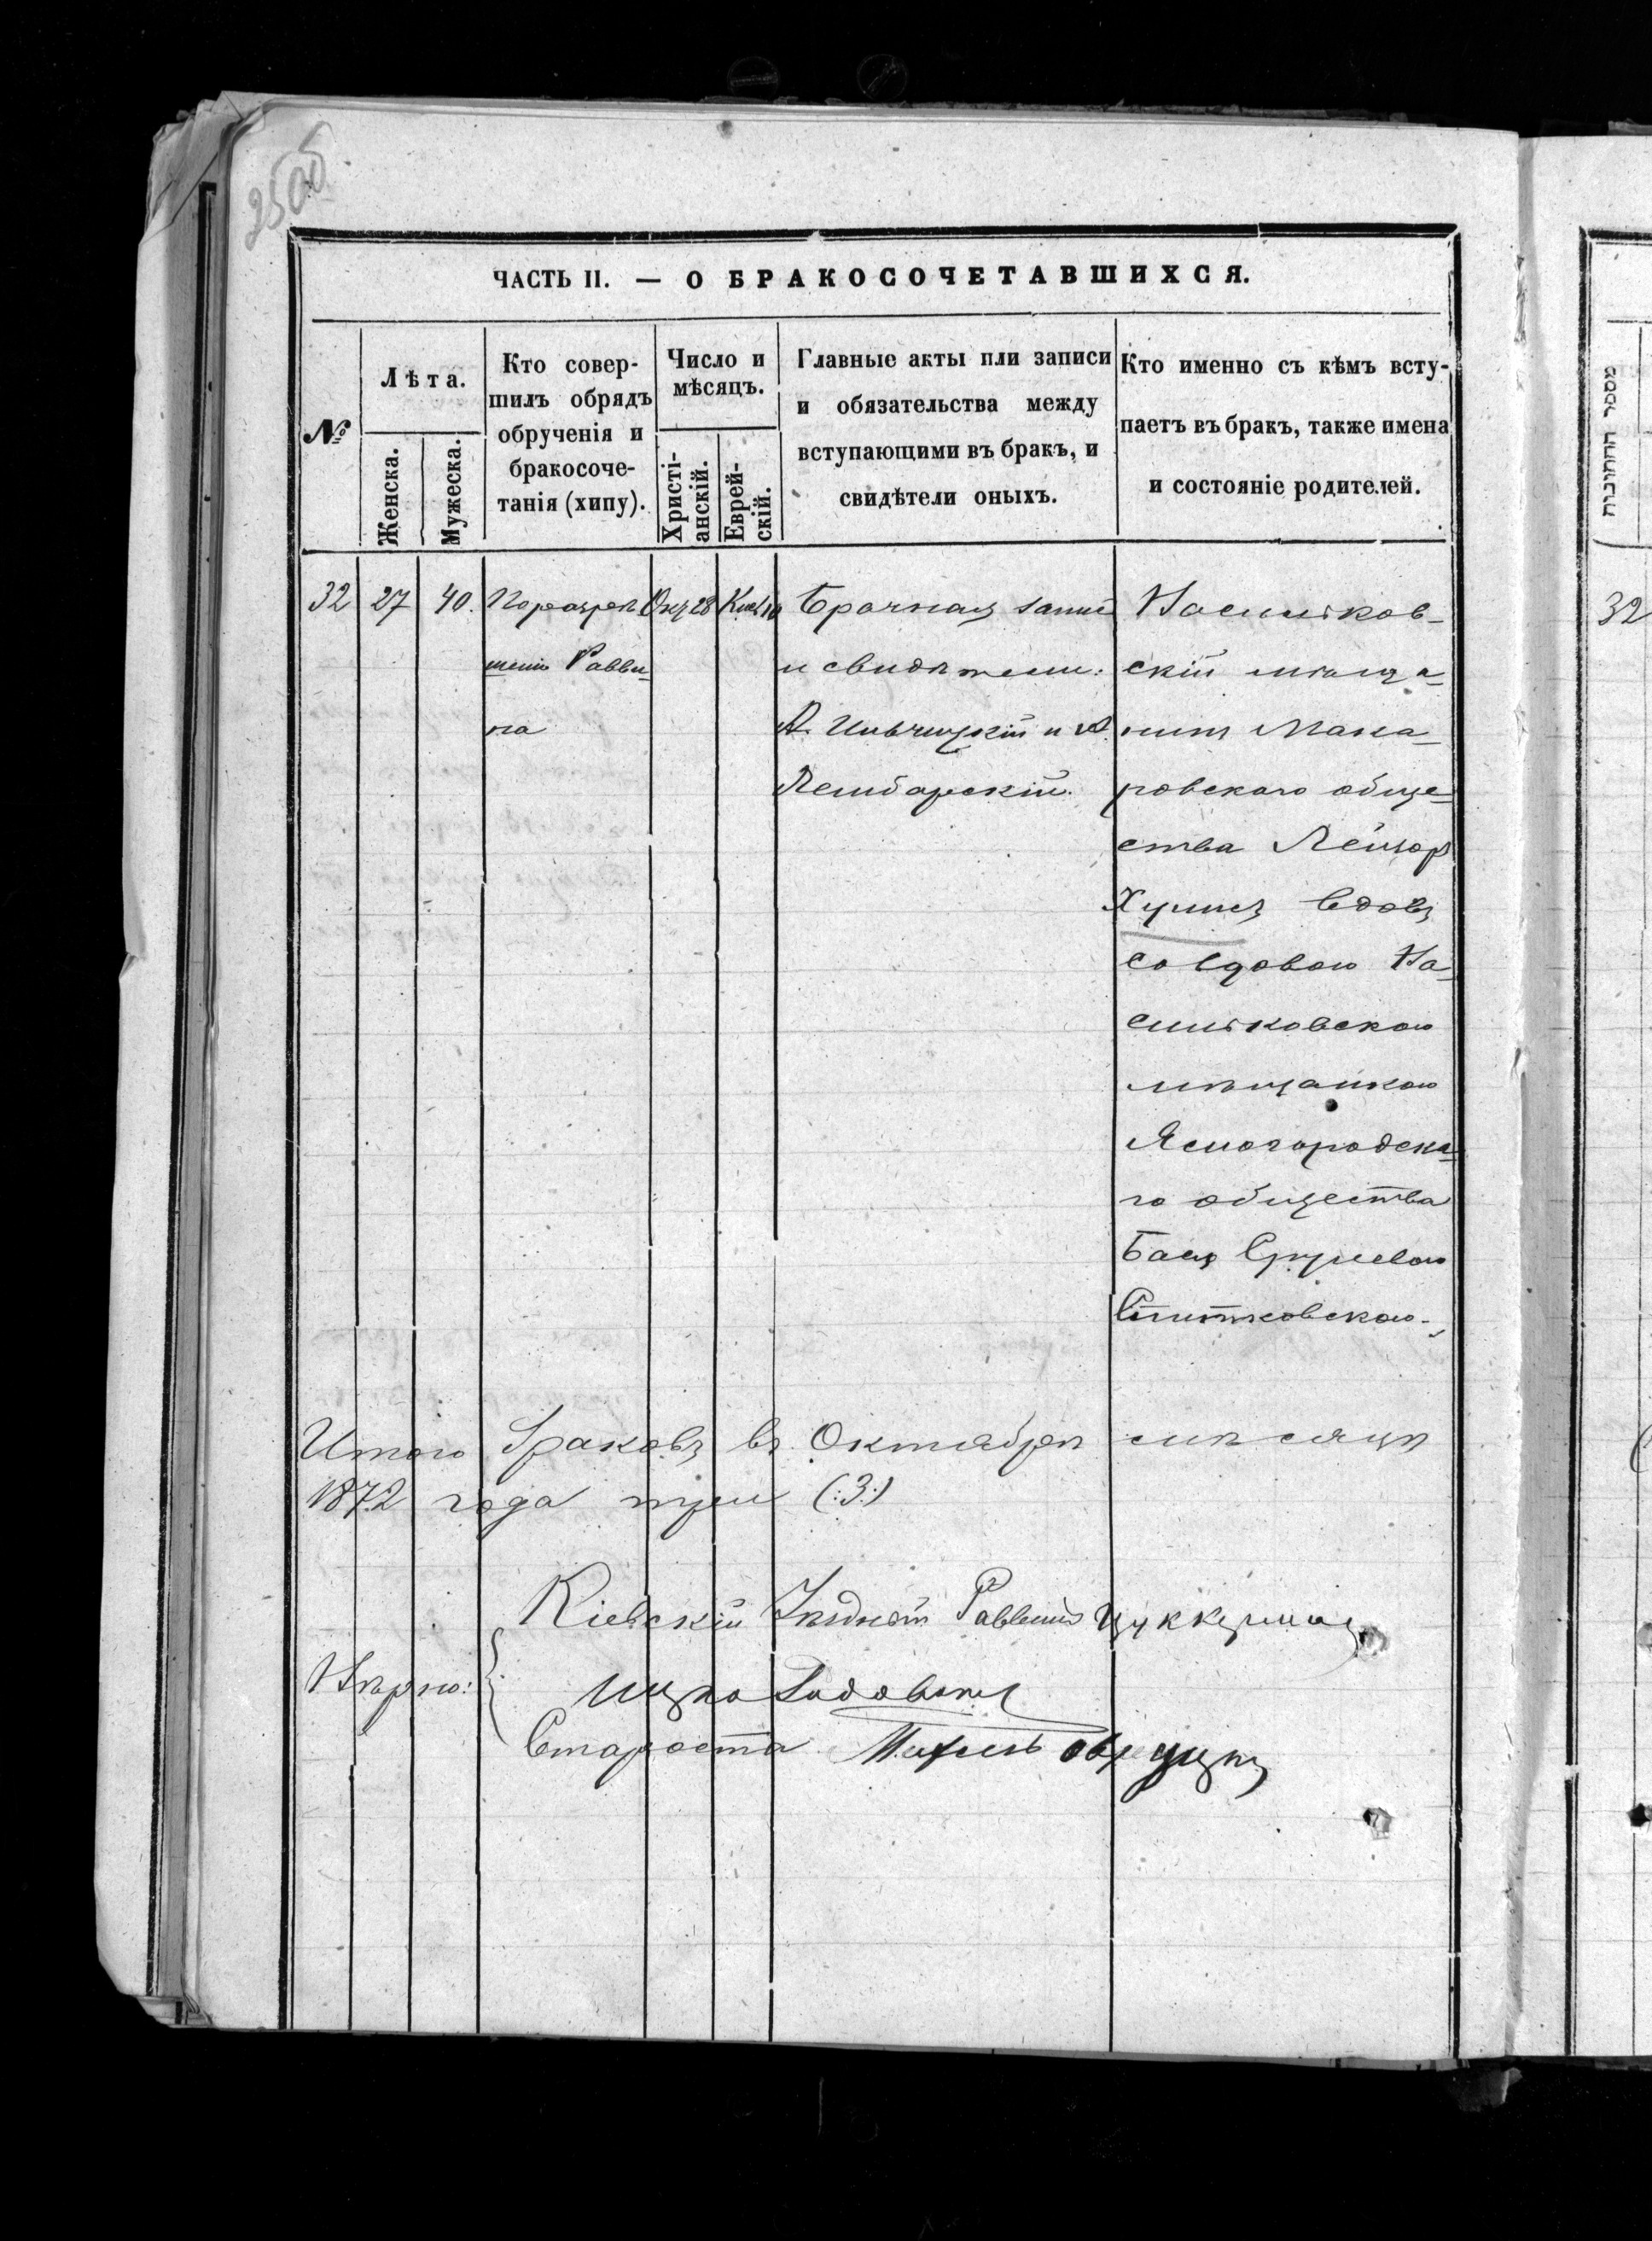 2500
ЧАСТЬ II. — О БРАКОСОЧЕТАВШИХСЯ.
№
Лѣта.
Женска.
Мужеска.
Кто совер-
шилъ обрядъ
обрученія и
бракосоче-
танія (хипу).
Число и
мѣсяцъ.
Христі-
анскій.
Еврей-
скій.
Главные акты или записи
и обязательства между
вступающими въ бракъ, и
свидѣтели оныхъ.
Кто именно съ кѣмъ всту-
паетъ въ бракъ, также имена
и состояніе родителей.
32
27
40.
По разрѣ
шенію Равви-
на
Окт 28
Брачная запись
и свидѣтели:
А.
Лембарскій.
Васильков-
скій мѣща-
нинъ Мака-
ровскаго обще-
ства Лейзор
вдовъ
со вдовою Ва-
сильковскою
мѣщанкою
Ясногородска-
го общества
Бася Сруlевою
Ситковскою.
Итого браковъ въ Октябрѣ мѣсяцѣ
1872 года три (:3:)
Кіевскій Уѣздный Раввинъ Цуккерман
Вѣрно:
Ицко
Староста
מספר החתונות
32